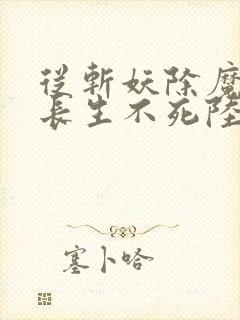 從斬妖除魔
長生不死陸
塞卜哈